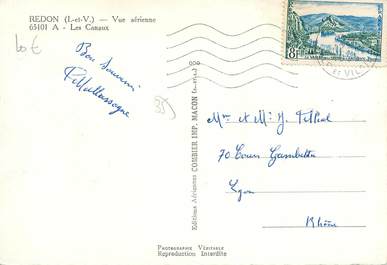 REDON (I.-et-V.) — Vue aérienne
63101 A - Les Canaux
10 €
Bon Souvenir
35
8F
Editions Aériennes COMBIER IMP. MACON (S.-et-L.)
Mme et Mr J.
70 Cours Gambetta
Lyon
Rhône
PHOTOGRAPHIE VÉRITABLE
Reproduction Interdite